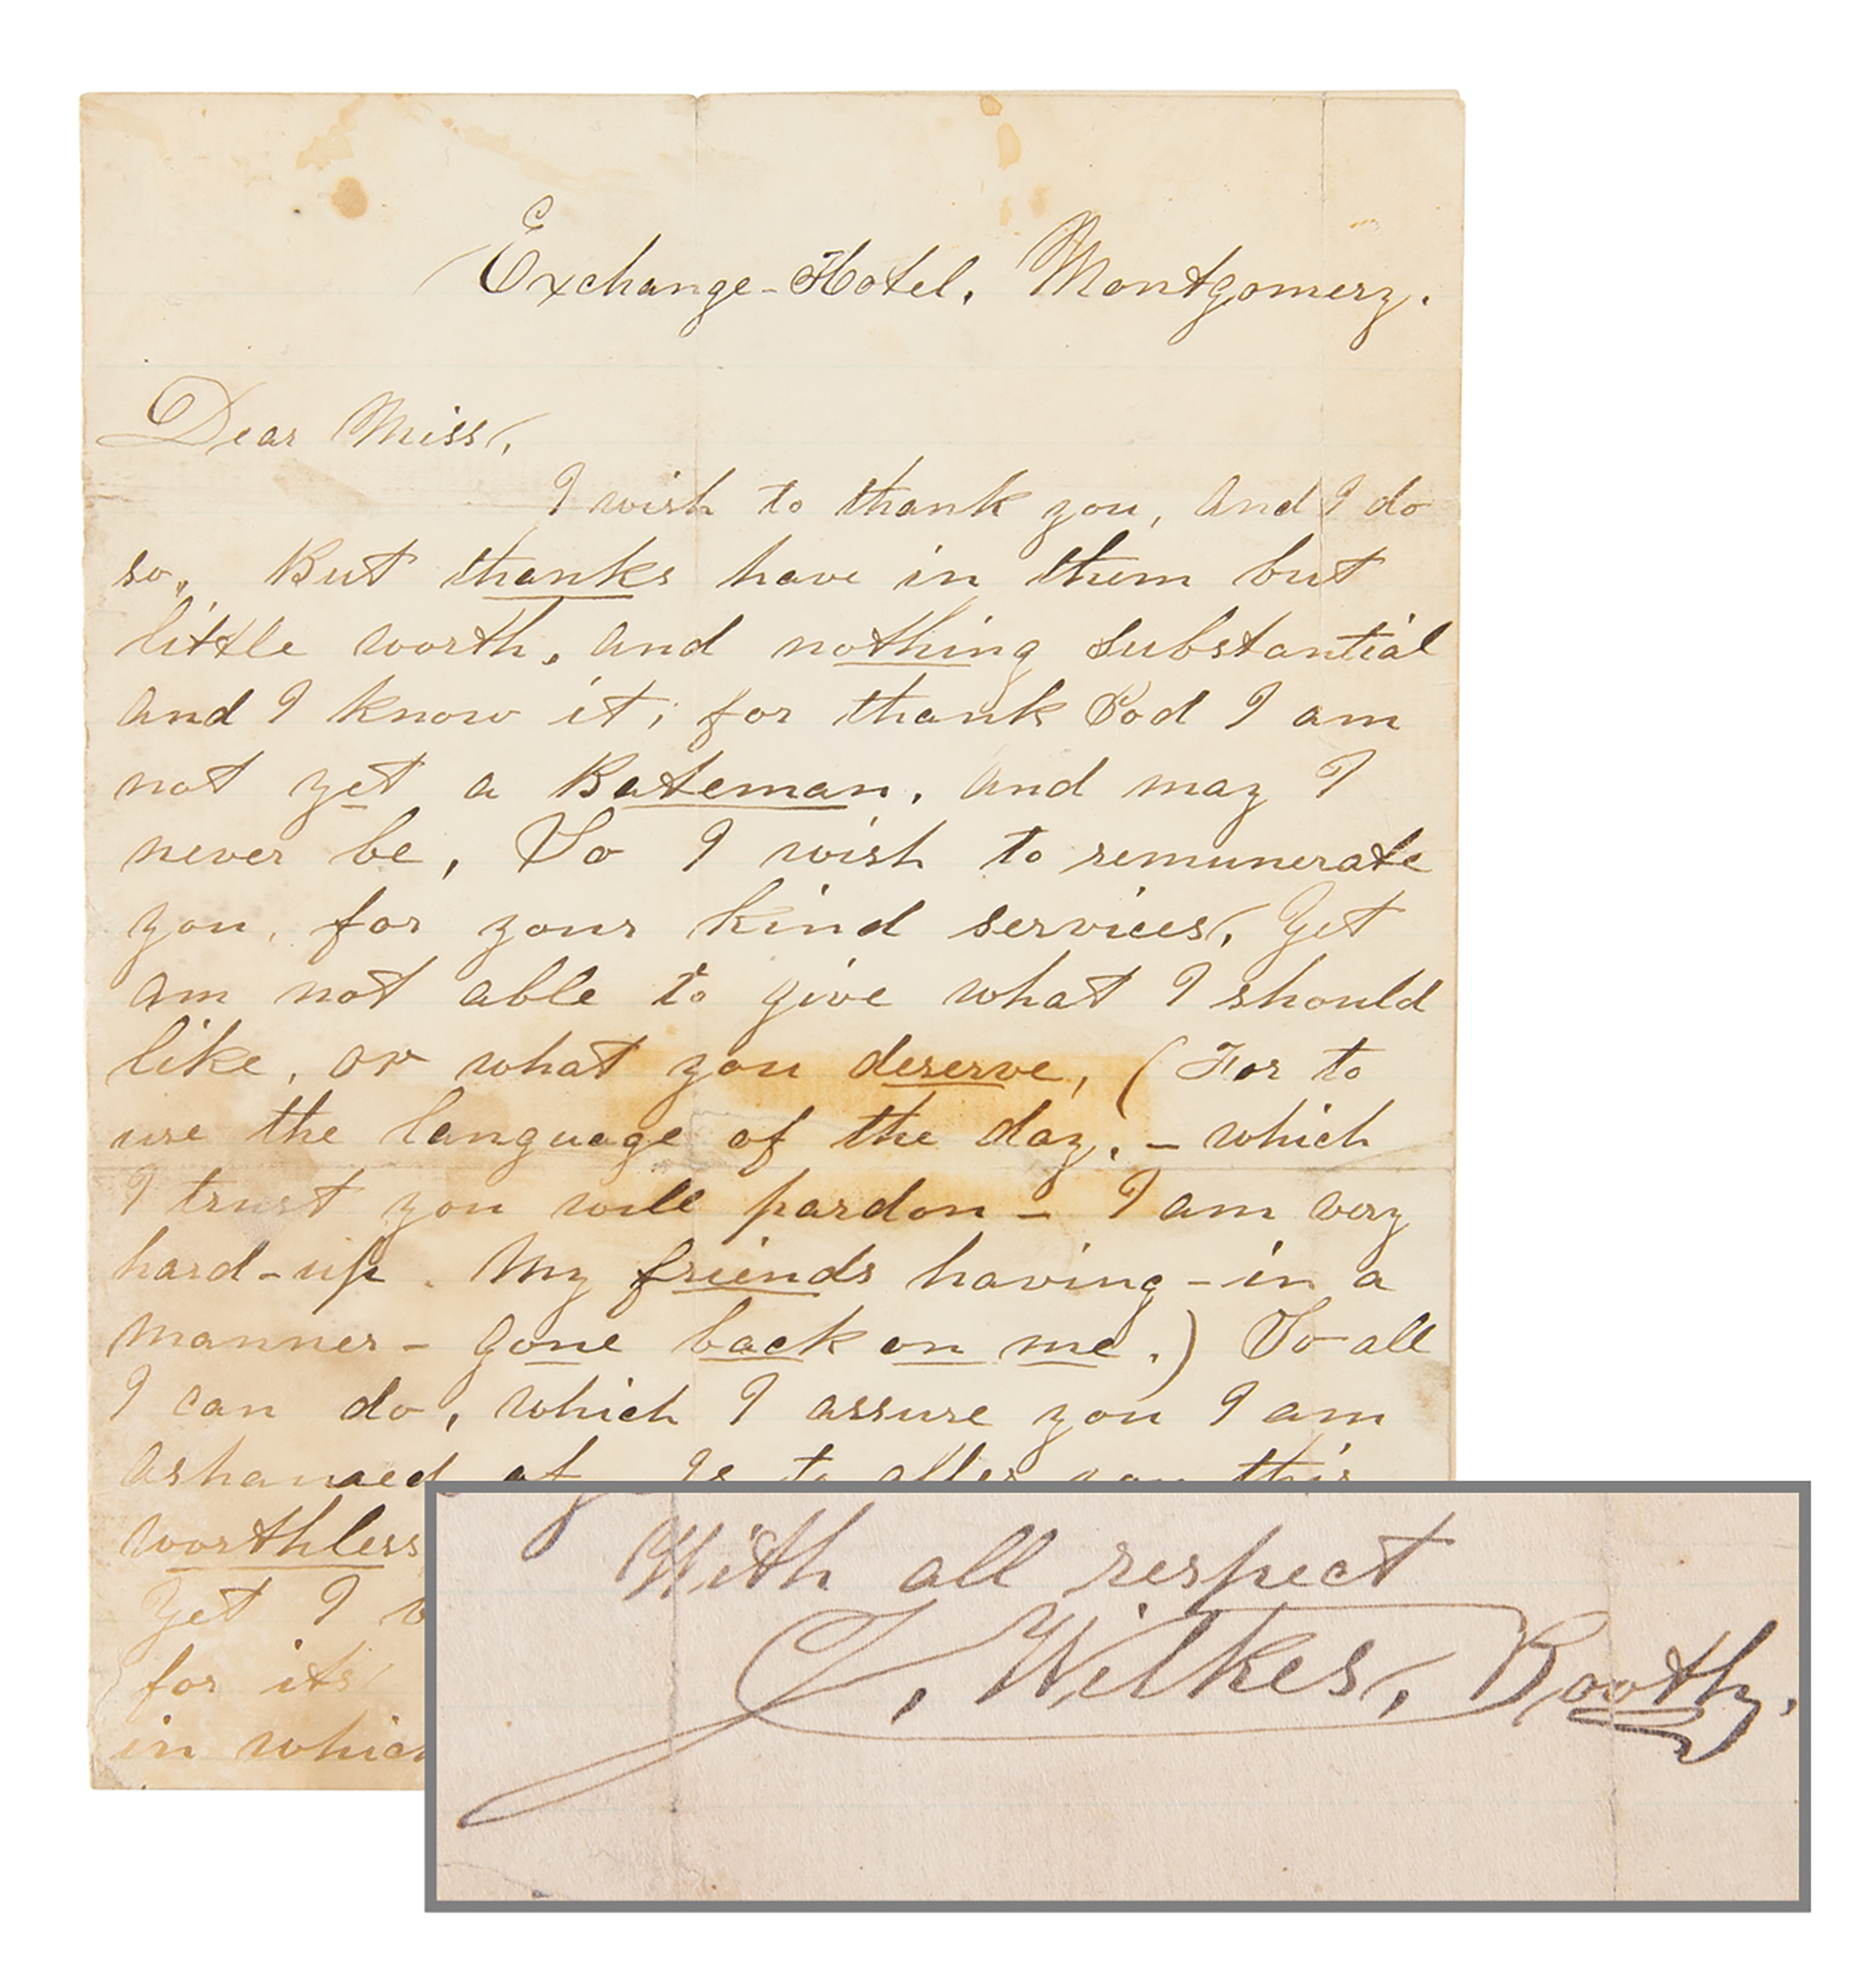 Exchange-Hotel. Montgomery.
Dear Miss,
I wish to thank you, and I do
so, But thanks have in them but
little worth, and nothing substantial
and I know it; for thank God I am
not yet a Bateman, and may I
never be, So I wish to remunerate
you, for your kind services, Yet
am not able to give what I should
like, or what you deserve, (For to
use the language of the day, - which
I trust you will pardon - I am very
hard-up. My friends having - in a
manner - gone back on me.) So all
I can do, which I assure you I am
ashamed of Is to offer you this
worthless
Yet I
for its
in which
With all respect
J. Wilkes, Booth,